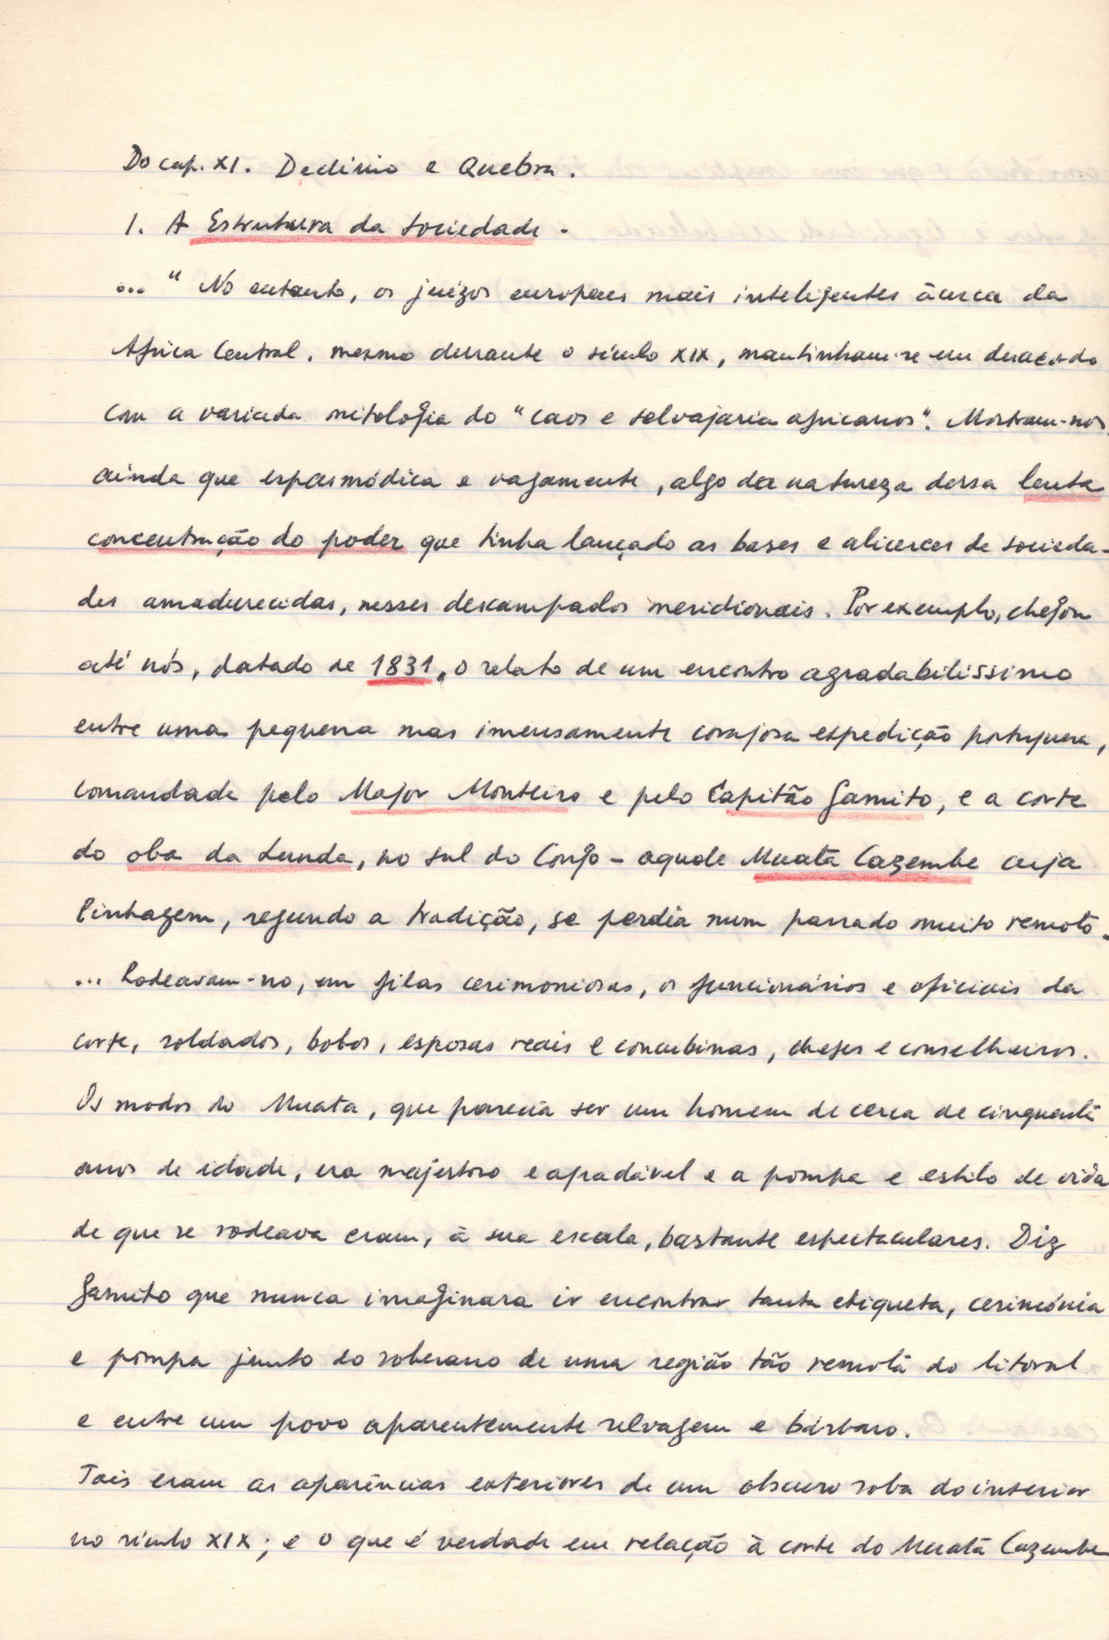 Do cap. XI. Declínio e Quebra.
1. A Estrutura da Sociedade.
... "No entanto, os juízos europeus mais inteligentes àcerca da
Africa Central, mesmo durante o século XIX, mantinham-se em desacordo
com a variada mitologia do "caos e selvajaria africanos". Mostram-nos,
ainda que espasmódica e vagamente, algo da natureza dessa lenta
concentração do poder que tinha lançado as bases e alicerces de socieda-
des amadurecidas, nesses descampados meridionais. Por exemplo, chegou
até nós, datado de 1831, o relato de um encontro agradabilíssimo
entre uma pequena mas imensamente corajosa expedição portuguesa,
comandada pelo Major Monteiro e pelo Capitão Gamito, e a corte
do oba da Lunda, no sul do Congo - aquele Muata Cazembe cuja
linhagem, segundo a tradição, se perdia num passado muito remoto.
... Rodeavam-no, em filas cerimoniosas, os funcionários e oficiais da
corte, soldados, bobos, esposas reais e concubinas, chefes e conselheiros.
Os modos do Muata, que parecia ser um homem de cerca de cinquenta
anos de idade, era majestoso e agradável e a pompa e estilo de vida
de que se rodeava eram, à sua escala, bastante espectaculares. Diz
Gamito que nunca imaginara ir encontrar tanta etiqueta, cerimónia
e pompa junto do soberano de uma região tão remota do litoral
e entre um povo aparentemente selvagem e bárbaro.
Tais eram as aparências exteriores de um obscuro soba do interior
no século XIX; e o que é verdade em relação à corte do Muata Cazembe